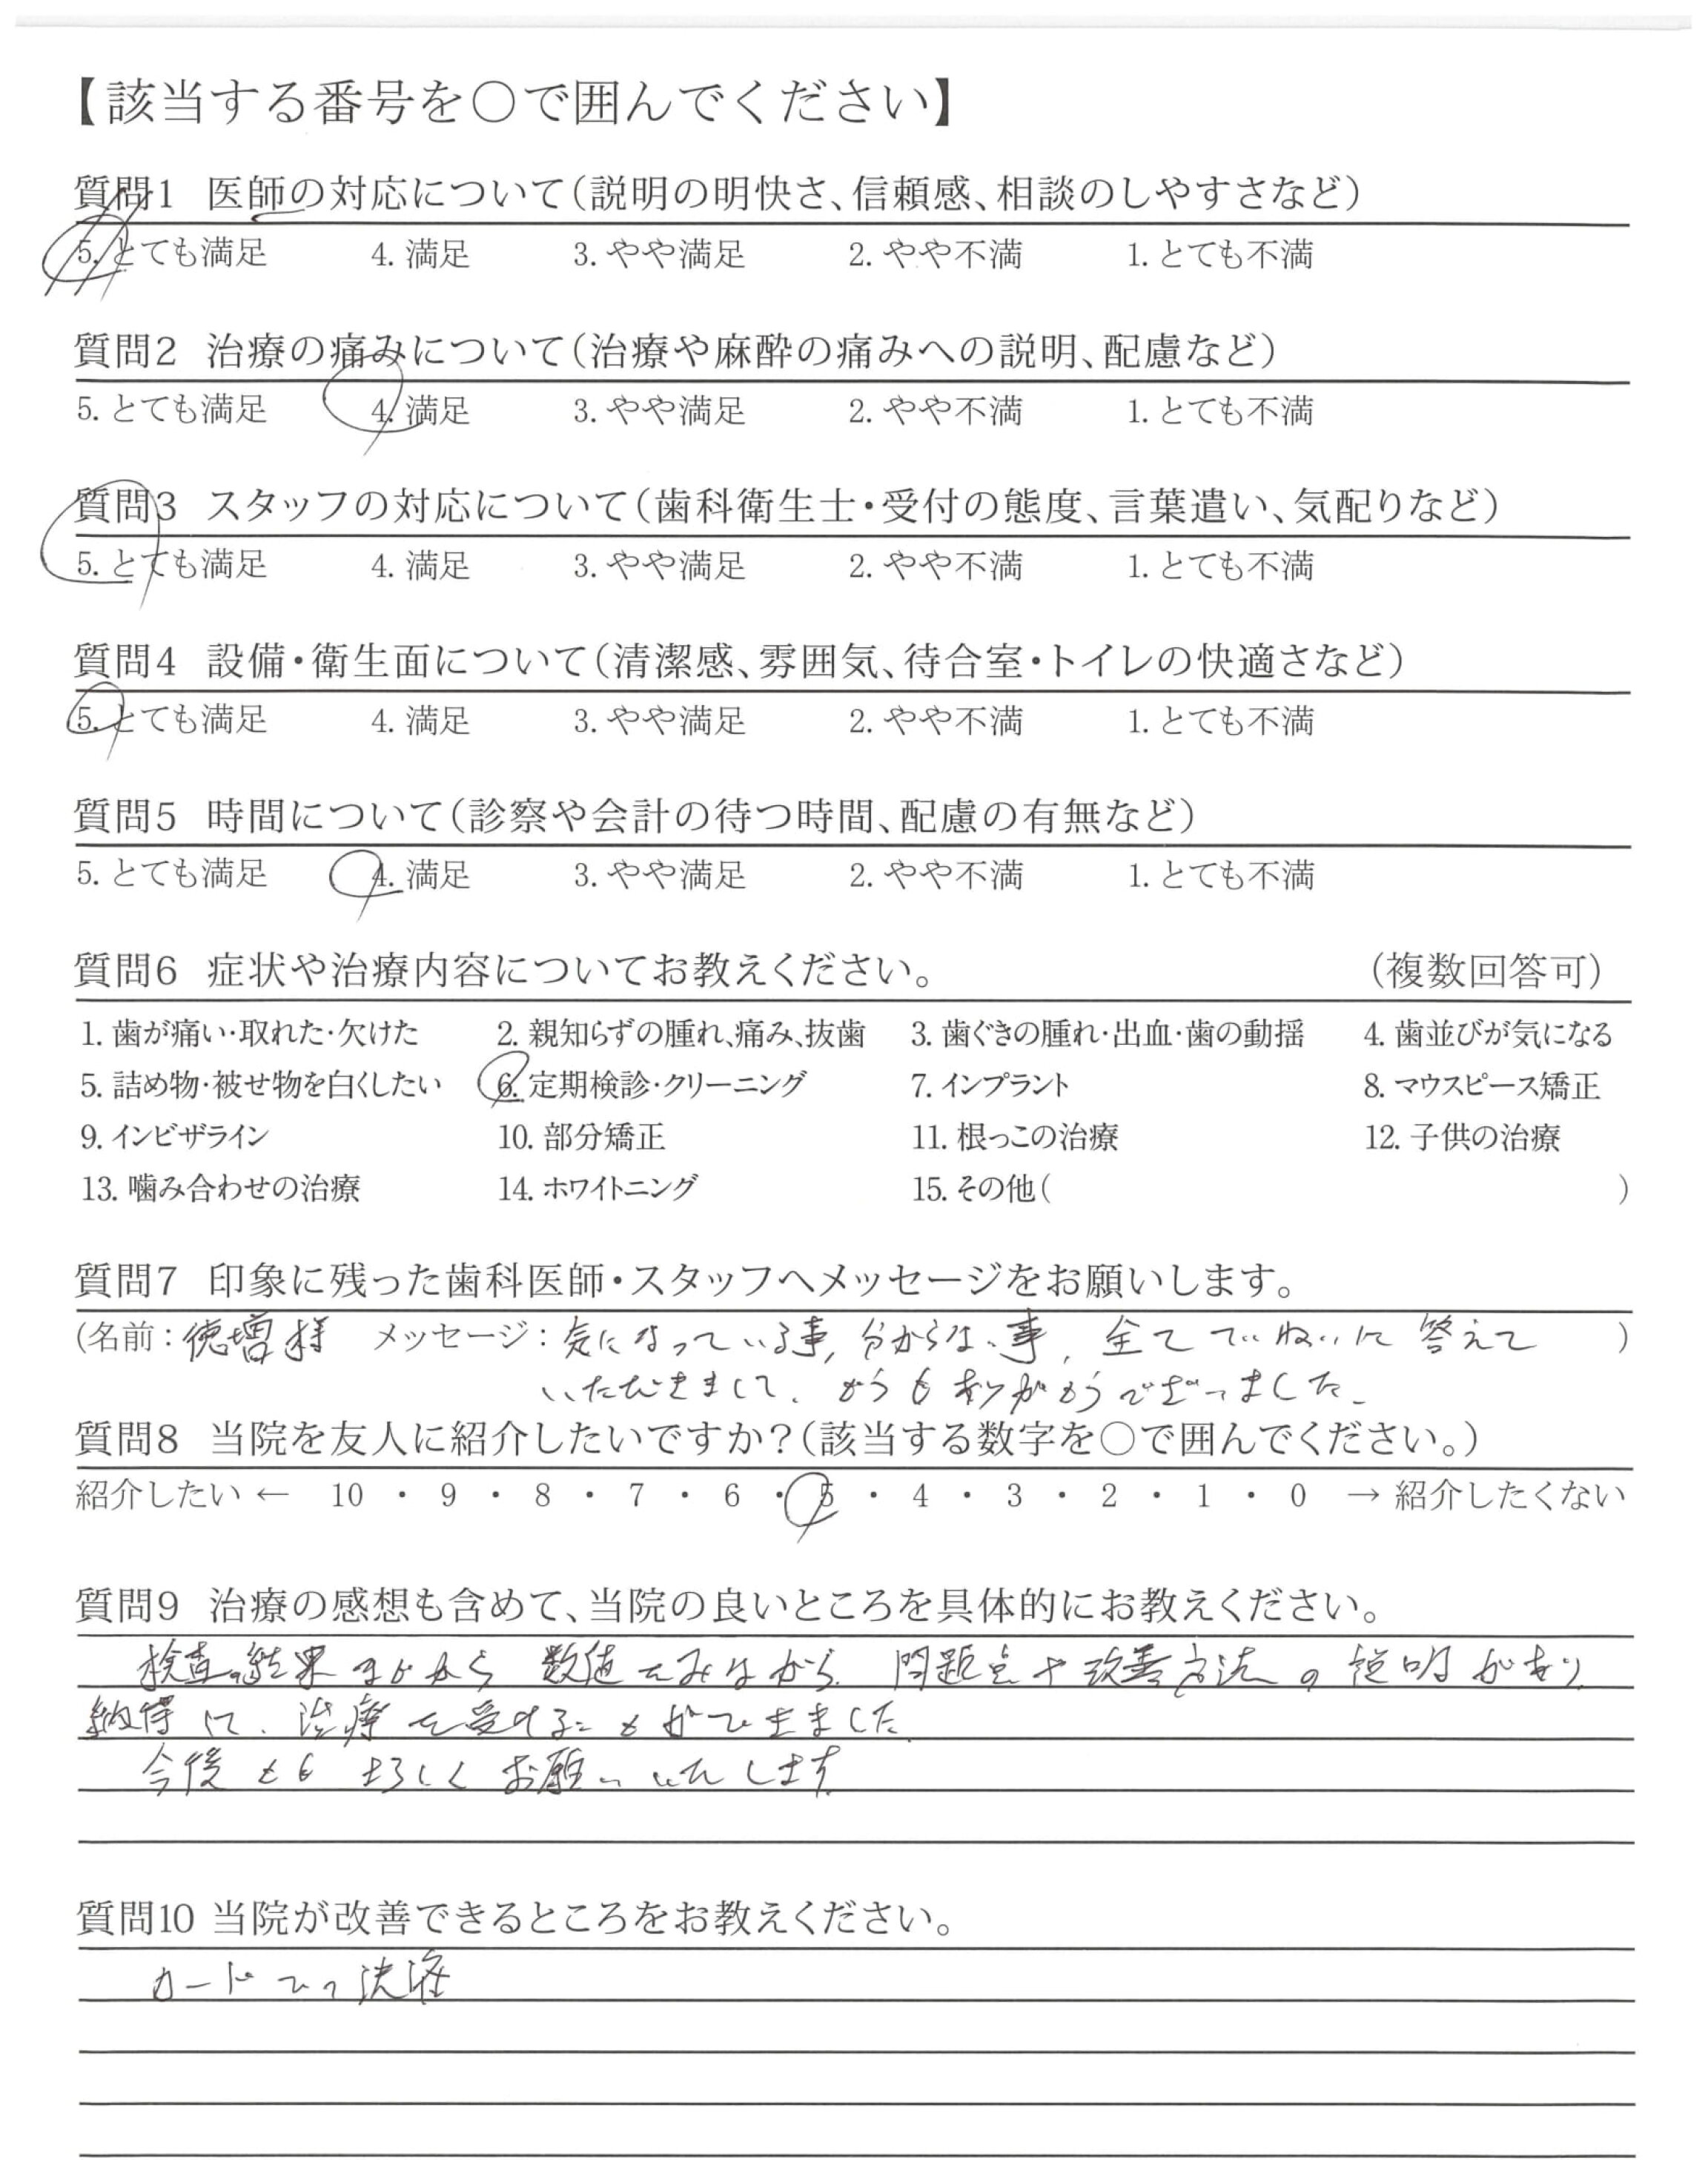 【該当する番号を○で囲んでください】
質問1 医師の対応について(説明の明快さ、信頼感、相談のしやすさなど)
5. とても満足 4. 満足 3. やや満足 2. やや不満 1. とても不満
質問2 治療の痛みについて(治療や麻酔の痛みへの説明、配慮など)
5. とても満足 4. 満足 3. やや満足 2. やや不満 1. とても不満
質問3 スタッフの対応について(歯科衛生士・受付の態度、言葉遣い、気配りなど)
5. とても満足 4. 満足 3. やや満足 2. やや不満 1. とても不満
質問4 設備・衛生面について(清潔感、雰囲気、待合室・トイレの快適さなど)
5. とても満足 4. 満足 3. やや満足 2. やや不満 1. とても不満
質問5 時間について(診察や会計の待つ時間、配慮の有無など)
5. とても満足 4. 満足 3. やや満足 2. やや不満 1. とても不満
質問6 症状や治療内容についてお教えください。 (複数回答可)
1. 歯が痛い・取れた・欠けた 2. 親知らずの腫れ、痛み、抜歯 3. 歯ぐきの腫れ・出血・歯の動揺 4. 歯並びが気になる
5. 詰め物・被せ物を白くしたい 6. 定期検診・クリーニング 7. インプラント 8. マウスピース矯正
9. インビザライン 10. 部分矯正 11. 根っこの治療 12. 子供の治療
13. 噛み合わせの治療 14. ホワイトニング 15. その他( )
質問7 印象に残った歯科医師・スタッフへメッセージをお願いします。
(名前:徳増様 メッセージ:気になっている事, 分からない事, 全て ていねいに 答えて )
いただきまして、どうもありがとうございました。
質問8 当院を友人に紹介したいですか?(該当する数字を○で囲んでください。)
紹介したい ← 10 ・ 9 ・ 8 ・ 7 ・ 6 ・ 5 ・ 4 ・ 3 ・ 2 ・ 1 ・ 0 → 紹介したくない
質問9 治療の感想も含めて、当院の良いところを具体的にお教えください。
検査の結果 数値をみながら、問題点や改善方法の説明があり
納得に、治療を受けることができました
今後ともよろしくお願いいたします
質問10 当院が改善できるところをお教えください。
カードでの決済